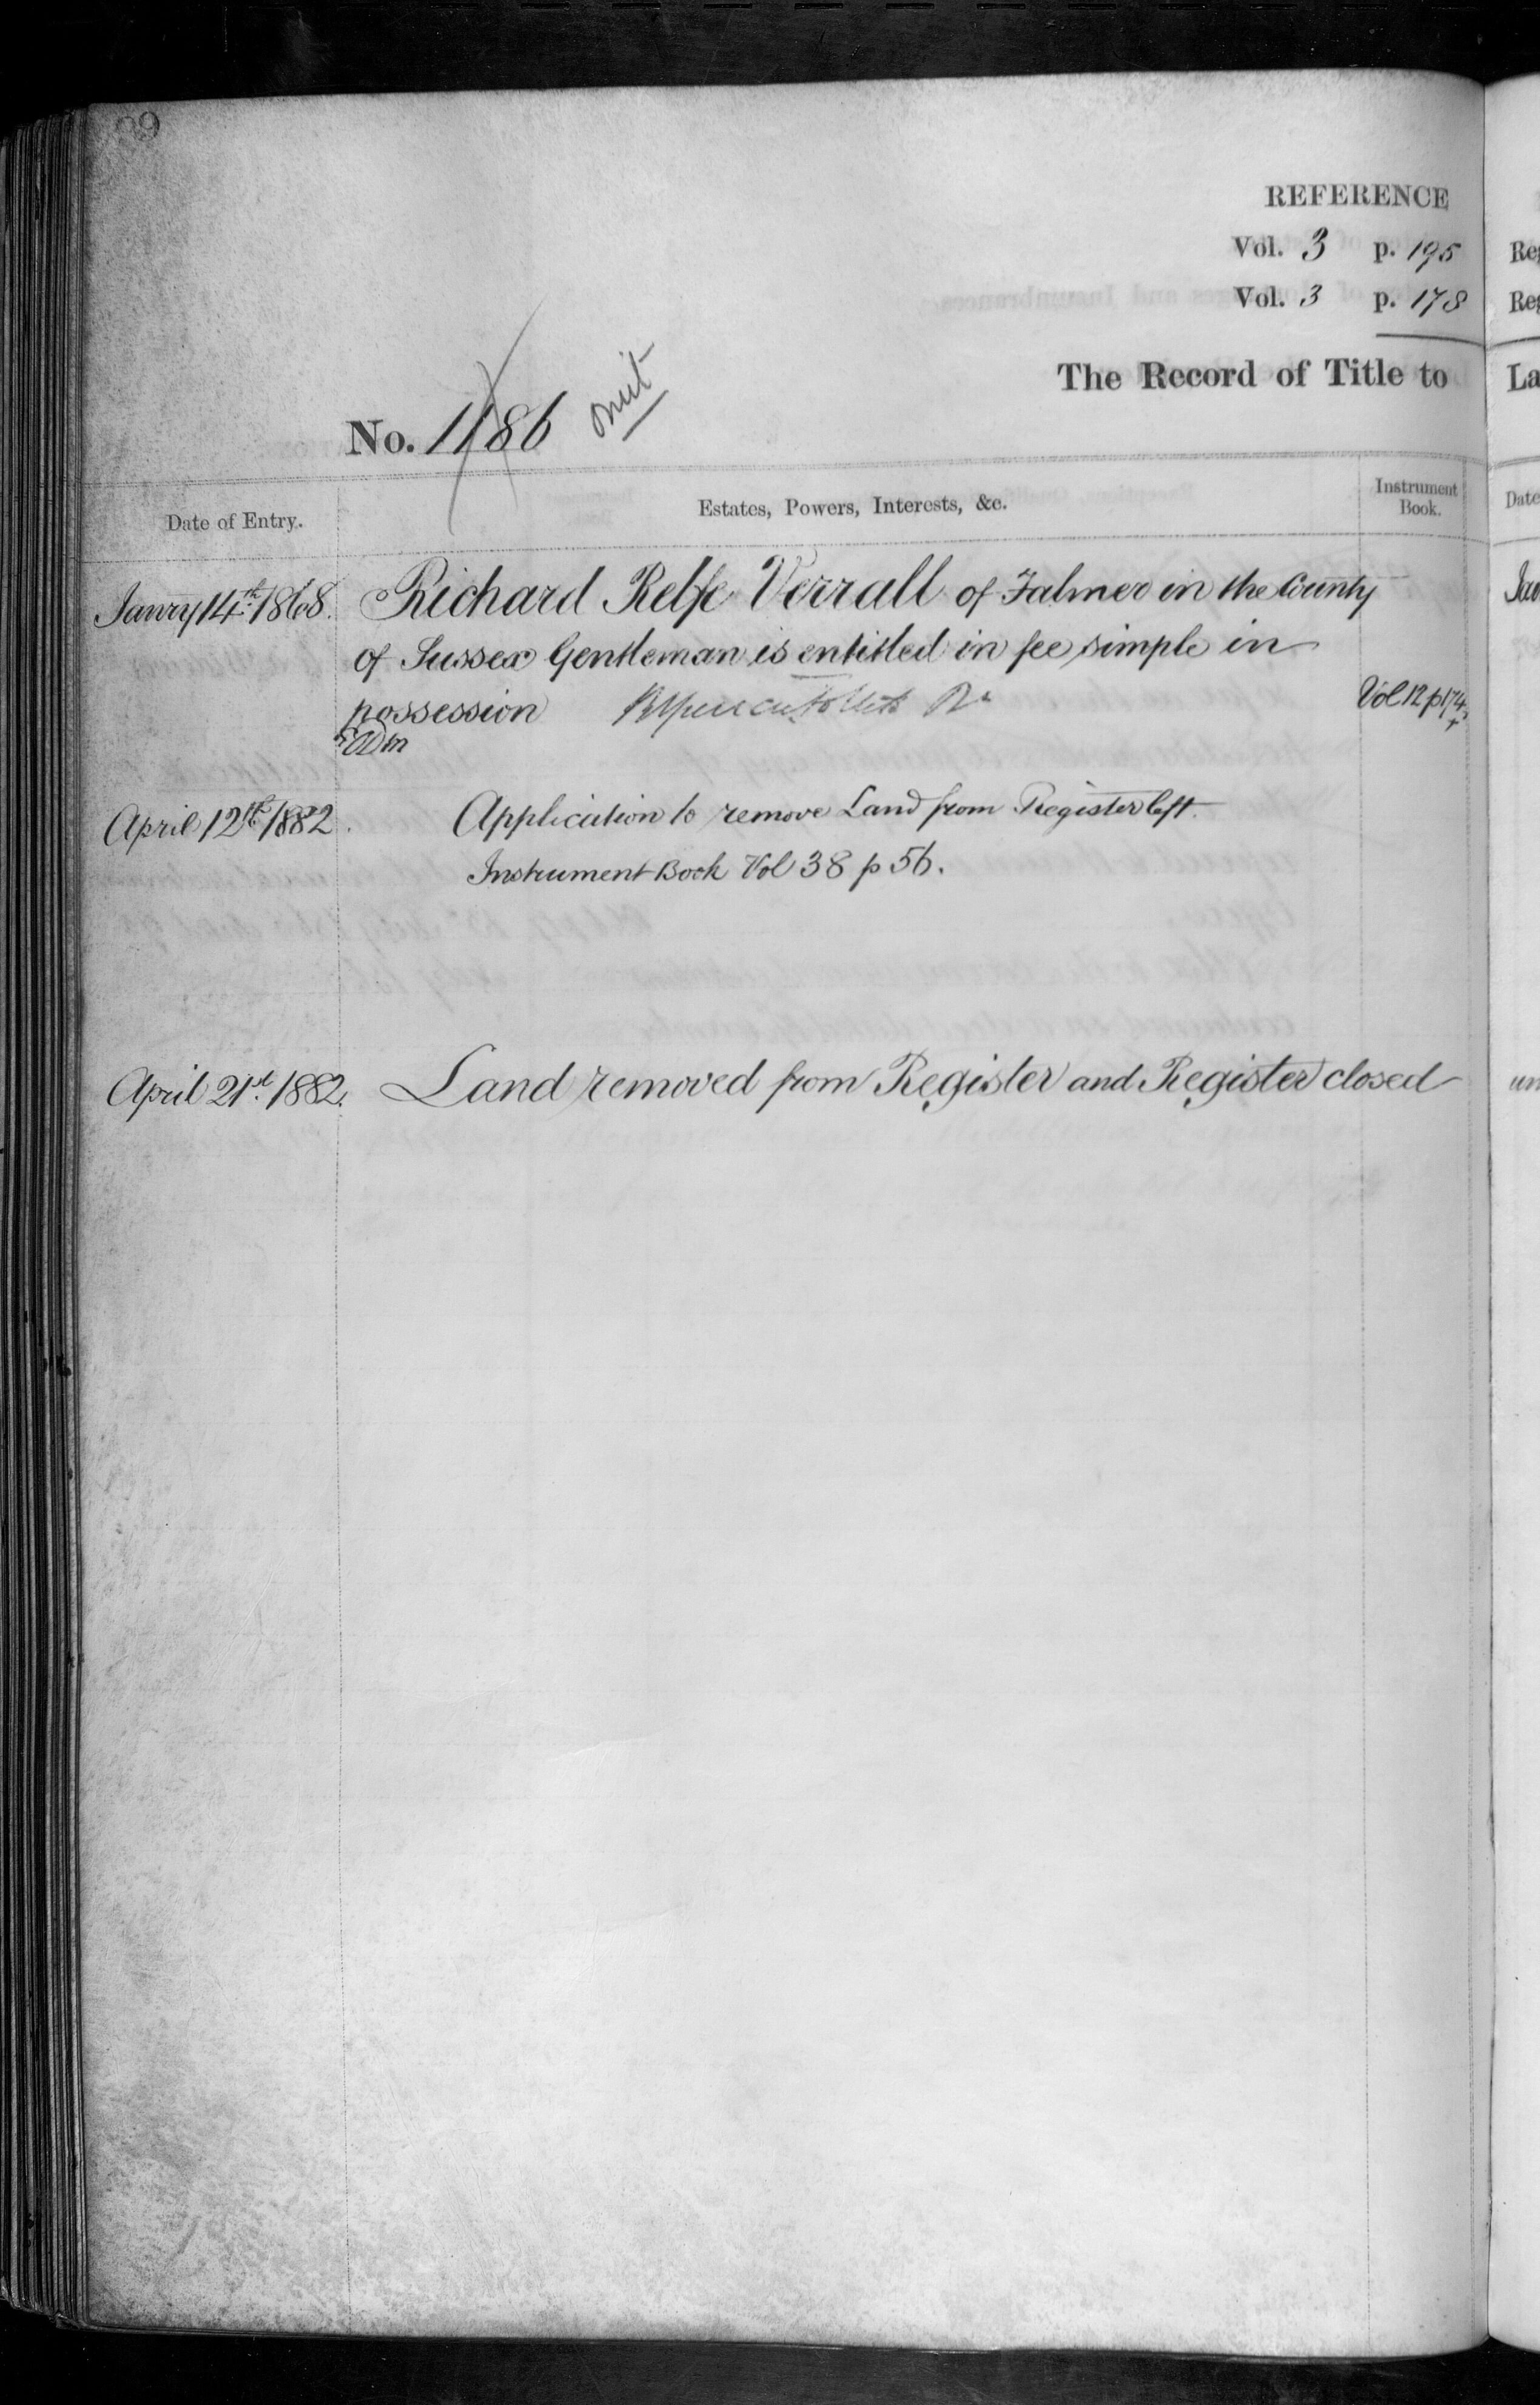 REFERENCE
Vol. 3 p. 195
Vol. 3 p. 178
The Record of Title to
No. 1186 omit
Date of Entry.
Estates, Powers, Interests, &c.
Instrument Book.
Janry 14th 1868. Richard Relfe Verrall of Falmer in the County
of Sussex Gentleman is entitled in fee simple in
possession Vol 12 p 174
April 12th 1882. Application to remove Land from Register left.
Instrument Book Vol 38 p 56.
April 21st 1882. Land removed from Register and Register closed